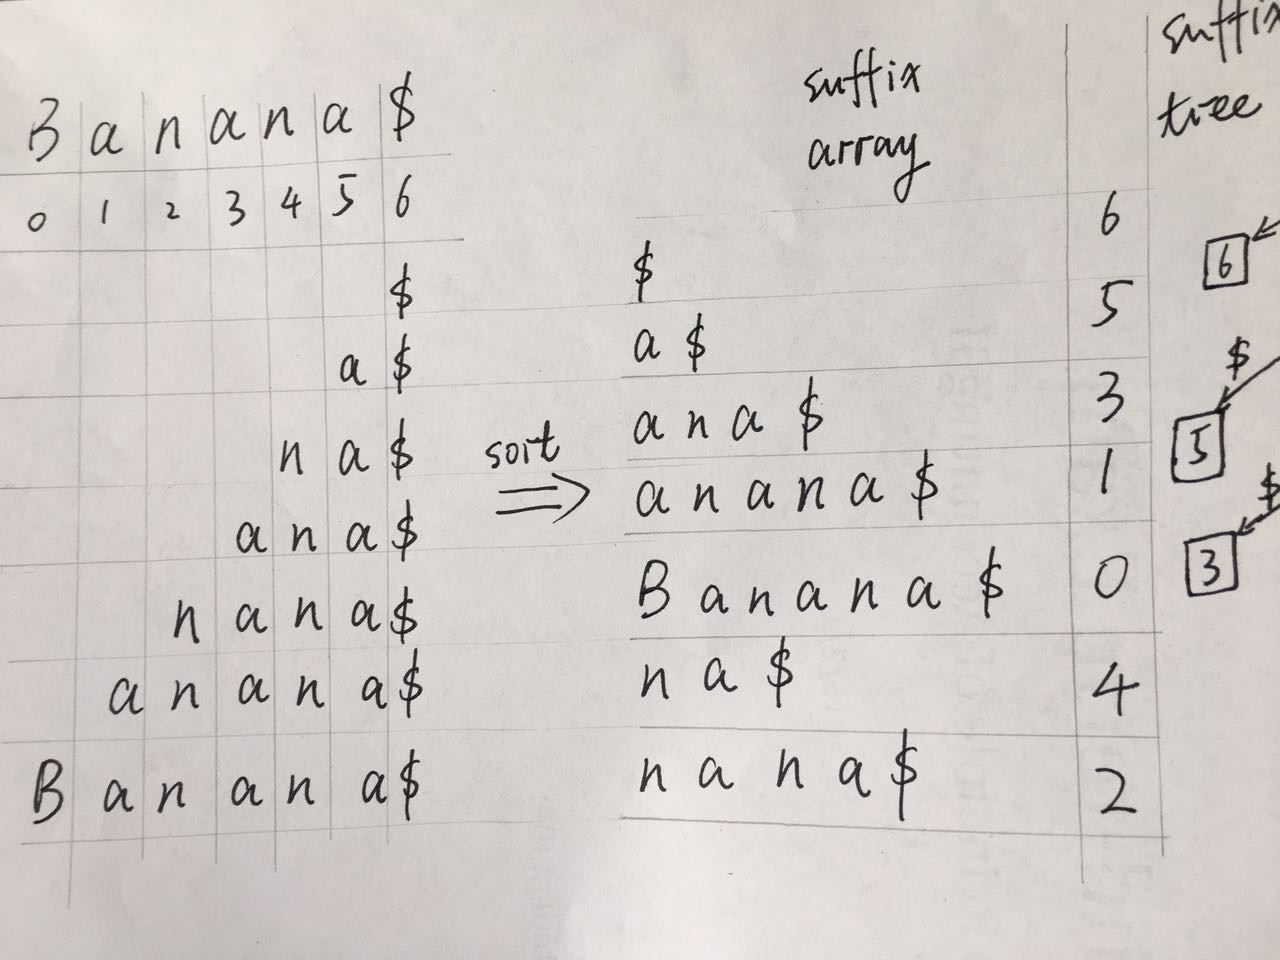 B a n a n a $
0 1 2 3 4 5 6
$
a $
n a $
a n a $
n a n a $
a n a n a $
B a n a n a $
sort
suffix
array
$ 6
a $ 5
a n a $ 3
a n a n a $ 1
B a n a n a $ 0
n a $ 4
n a n a $ 2
suffix
tree
6
$
5
$
3